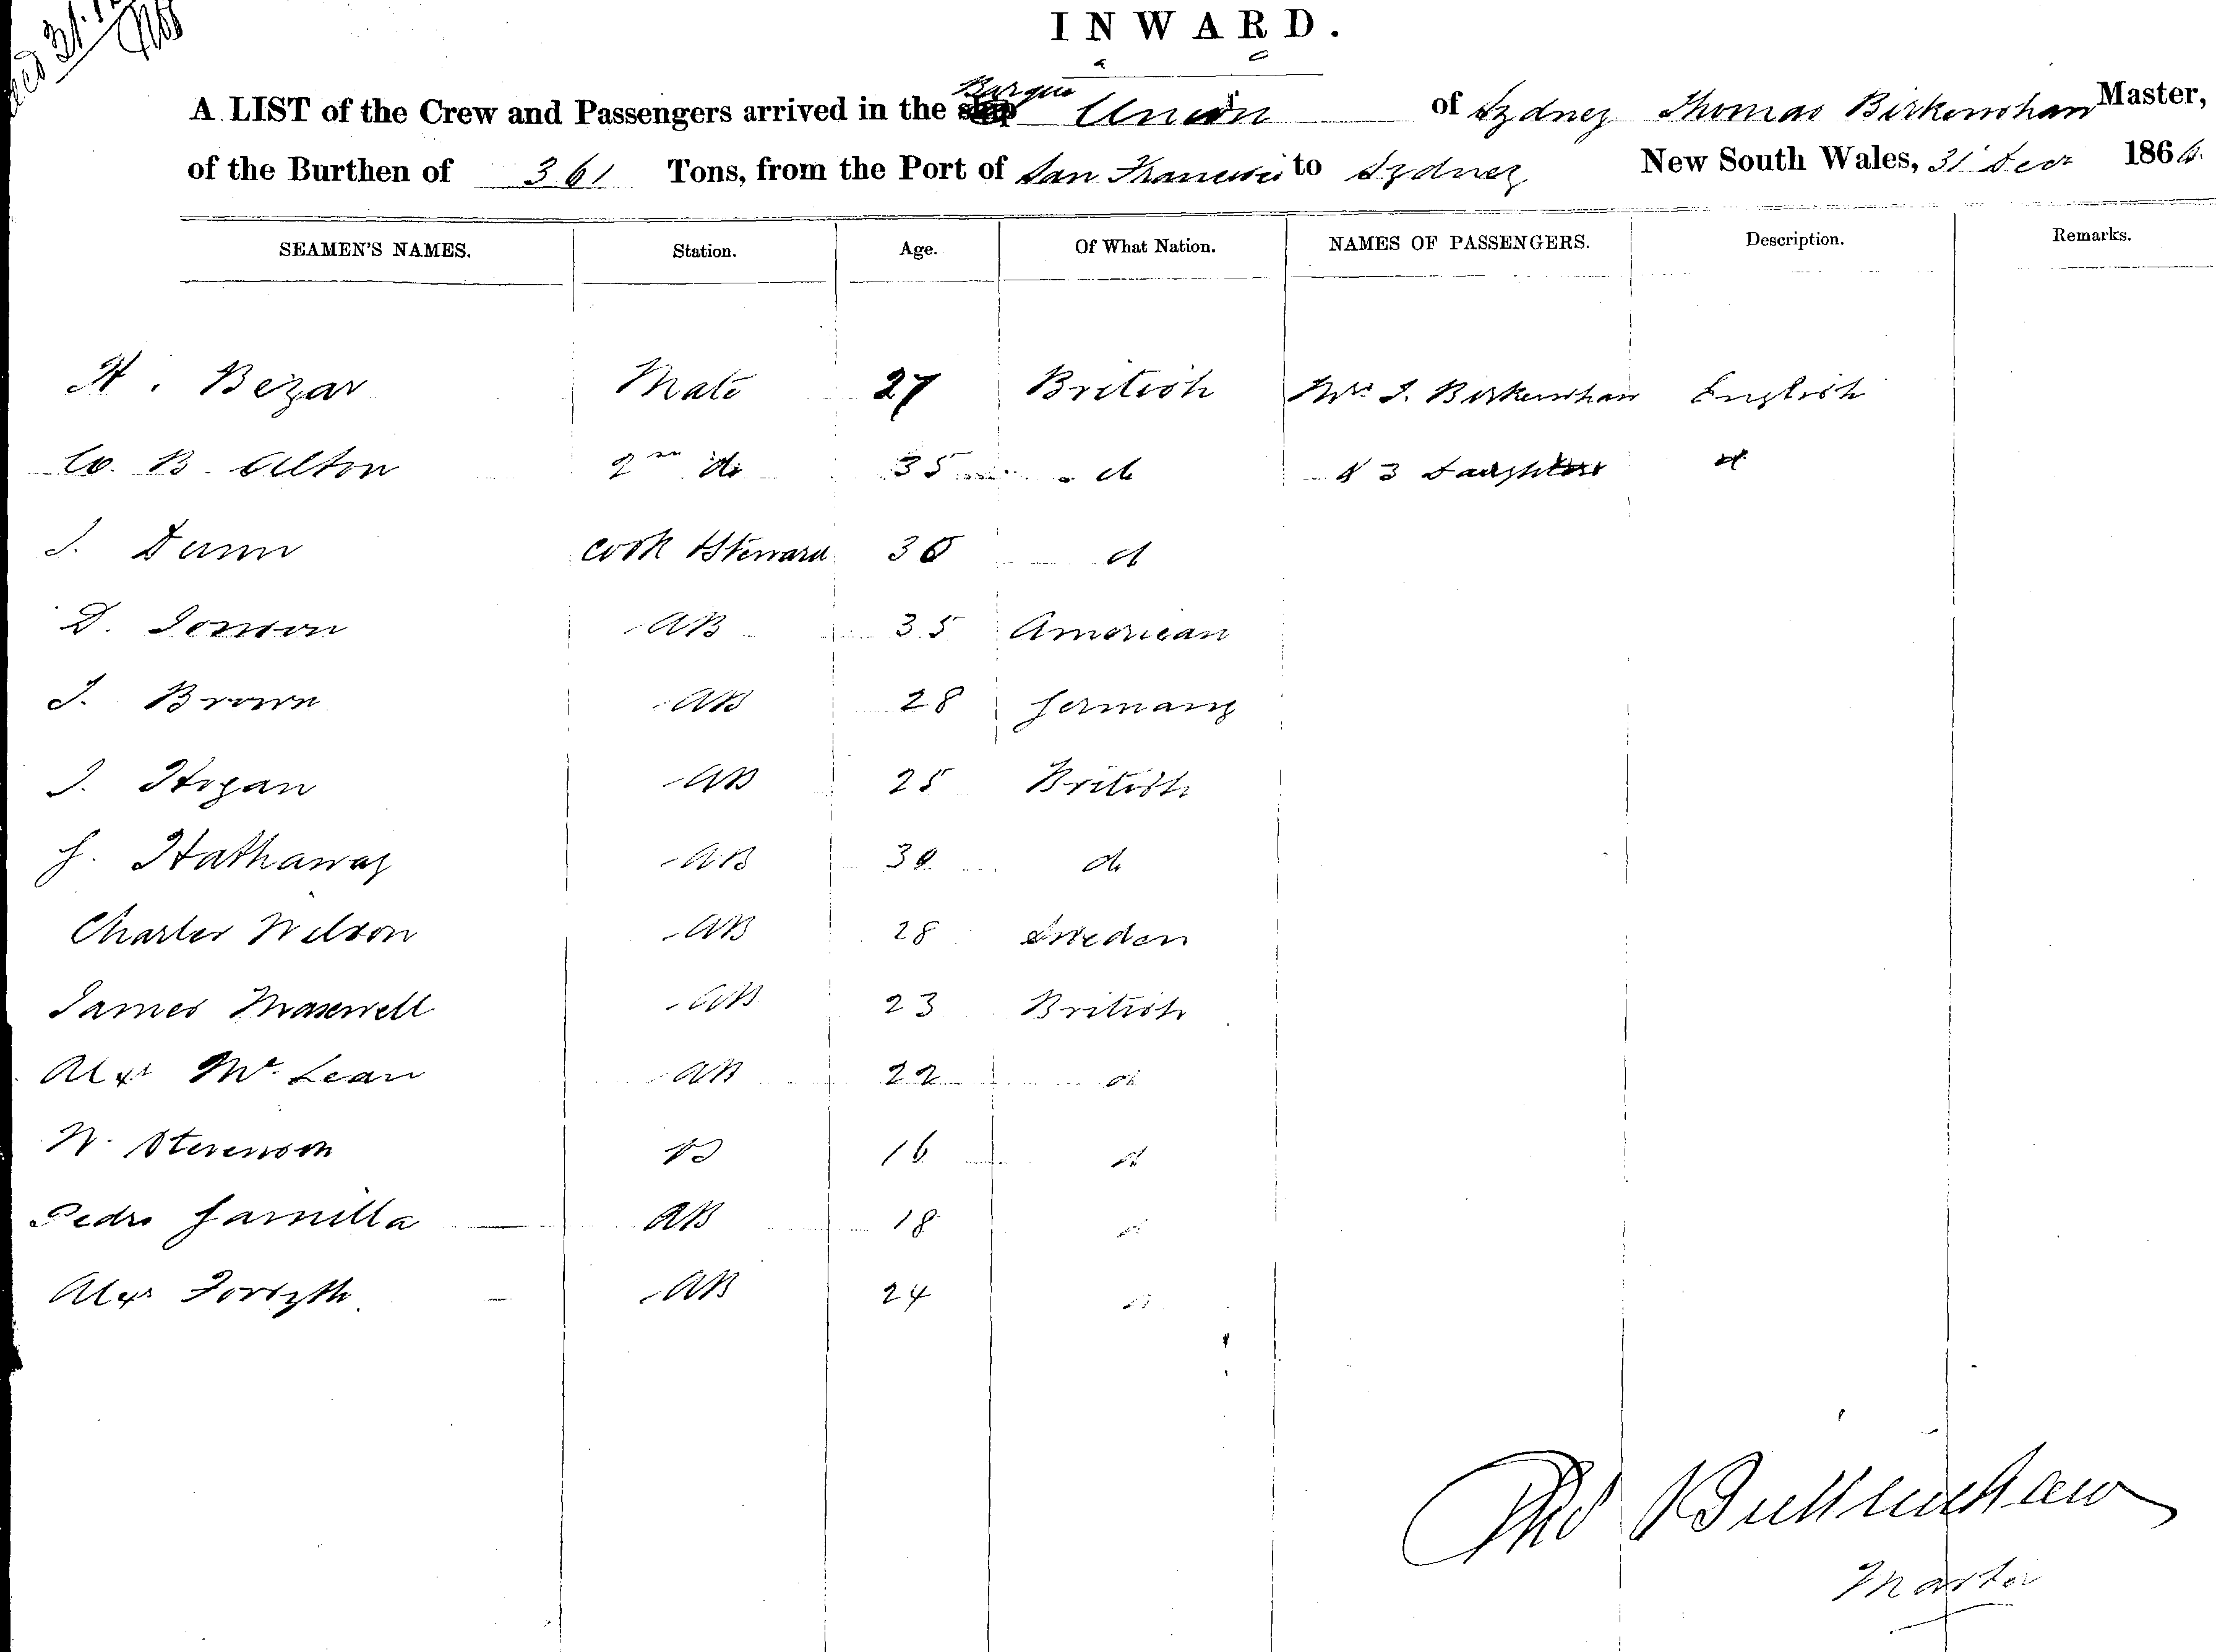 INWARD.
A LIST of the Crew and Passengers arrived in the Barque Union of Sydney Thomas Birkenshaw Master,
of the Burthen of 361 Tons, from the Port of San Francisco to Sydney New South Wales, 31 Decr 186
SEAMEN'S NAMES. Station. Age. Of What Nation. NAMES OF PASSENGERS. Description. Remarks.
H. Bezar Mate 27 British Mrs T. Birkenshaw English
B. Alton 2nd do 35 do & 3 Daughters do
J. Dunn Cook & Steward 30 do
D. Jonson AB 35 American
J. Brown AB 28 Germany
J. Hogan AB 25 British
G. Hathaway AB 30 do
Charles Wilson AB 28 Sweden
James Maxwell AB 23 British
Alexr McLean AB 22 do
W. Stevenson 16 do
Pedro AB 18 do
Alexr Forsyth AB 24 do
Thos Birkenshaw
Master